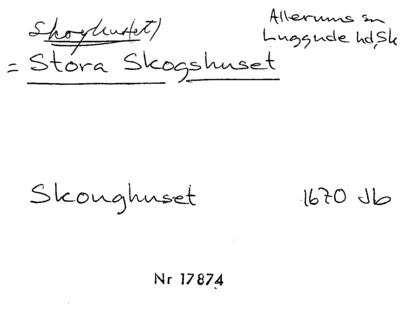 Skoghuset)
Allerums sn
Luggude hd, Sk
= Stora Skogshuset
Skoughuset 1670 Jb
Nr 17874